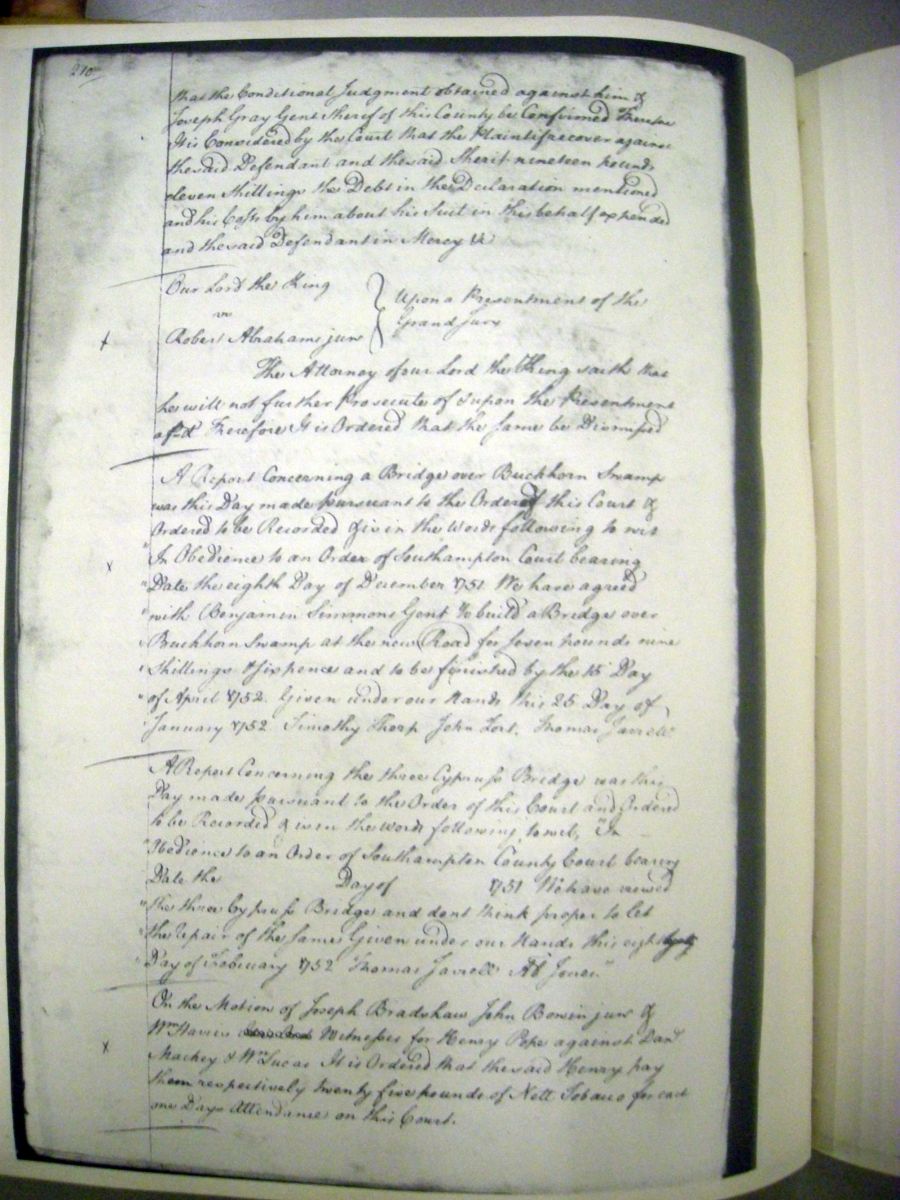 210
that the Conditional Judgment obtained against him &
Joseph Gray Gent Sheref of this County be Confirmed Therefore
It is Considered by the Court that the Plaintif recover against
the said Defendant and the said Sherif nineteen pounds
eleven Shillings the Debt in the Declaration mentioned
and his Costs by him about his Suit in this behalf expended
and the said Defendant in Mercy &c
Our Lord the King
vs
Robert Abrahams junr
Upon a Presentment of the
Grand jury
The Attorney of our Lord the King saith that
he will not further Prosecute of & upon the Presentment
afsd Therefore It is Ordered that the same be Dismissed
A Report Concerning a Bridge over Buckhorn Swamp
was this Day made pursuant to the Order of this Court &
Ordered to be Recorded & is in the Words following to wit
"In Obedience to an Order of Southampton Court bearing
"Date the eighth Day of December 1751 We have agreed
"with Benjamen Simmons Gent to build a Bridge over
"Buckhorn Swamp at the new Road for Seven pounds nine
"Shillings & Sixpence and to be finished by the 15 Day
"of April 1752. Given under our Hands this 25 Day of
"January 1752 Timothy Thorp John Fort. Thomas Jarrell
A Report Concerning the three Cypruss Bridge was this
Day made pursuant to the Order of this Court and Ordered
to be Recorded & is in the Words following to wit, "In
"Obedience to an Order of Southampton County Court bearing
Date the Day of 1751 We have viewed
"the three Cypruss Bridge and dont think proper to let
"the repair of the same Given under our Hands this eight
"Day of February 1752 Thomas Jarrell
On the Motion of Joseph Bradshaw John Bowin junr &
Wm Witnesses for Henry Pope against Danl
Mackey & Wm Lucas It is Ordered that the said Henry pay
them respectively twenty five pounds of Nett Tobacco for each
one Days Attendance on this Court.